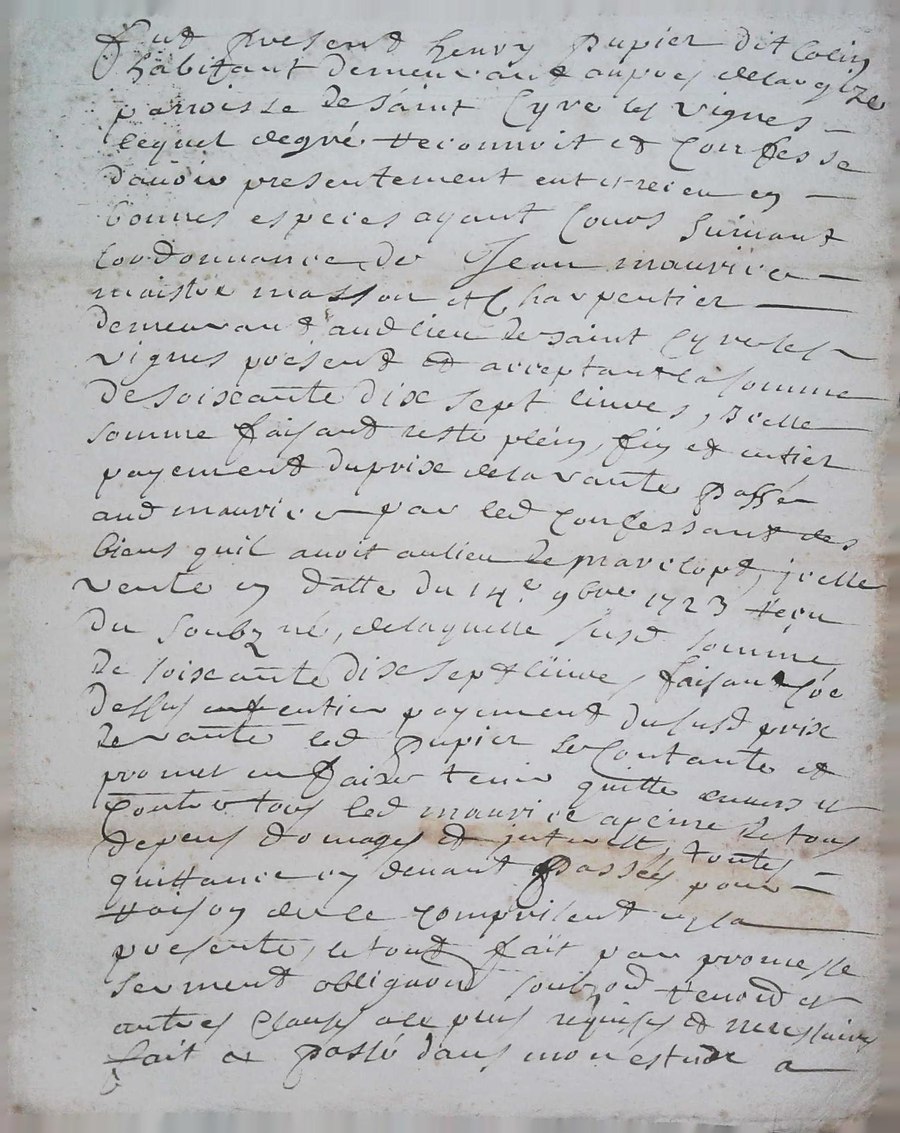 fut present henry pupier dit Colin
habitant demeurant aupres delargize
parroisse de Saint Cyre les vignes
lequel degré reconnoit et Confesse
d'avoir presentement eut et receu en
bonnes especes ayant Cours suivant
lordonnance, de Jean maurice
maistre masson et Charpentier
demeurant aud lieu de saint Cyre les
vignes present et acceptant la somme
de soixante dix sept livres, Icelle
somme faisant reste plein, fin et entier
payement du prix de la vante passée
aud maurice par led Confessant des
biens quil avoit au lieu de , jcelle
vente en datte du 14.e 9bre 1723 reçu
du soubzné, de laquelle susd somme
de soixante dix sept livres faisant Coe
dessus entier payement du susd prix
de vante led Pupier se Contante et
promet en faire tenir quitte envers et
Contre tous led maurice apeine de tous
depens domages et interests, toutes
quittance cy devant passées pour
raison de ce comprisent en la
presente, le tout fait par promesse
serment obligaon soubzon renond et
autres Clauses a ce plus requises et necessaires
fait et passé dans mon estude a